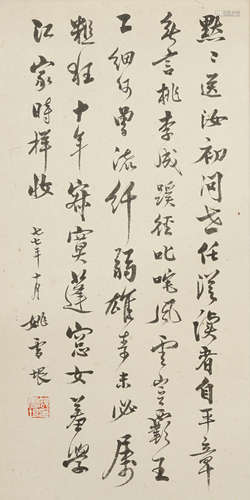 默々送汝初問世任從讀者自平章
無言桃李成蹊徑叱咤風雲豈霸王
工細何曾流纖弱雄奇未必屬
粗狂十年寂寞蓬窗女羞學
江家時樣妝
七七年十月 姚雪垠